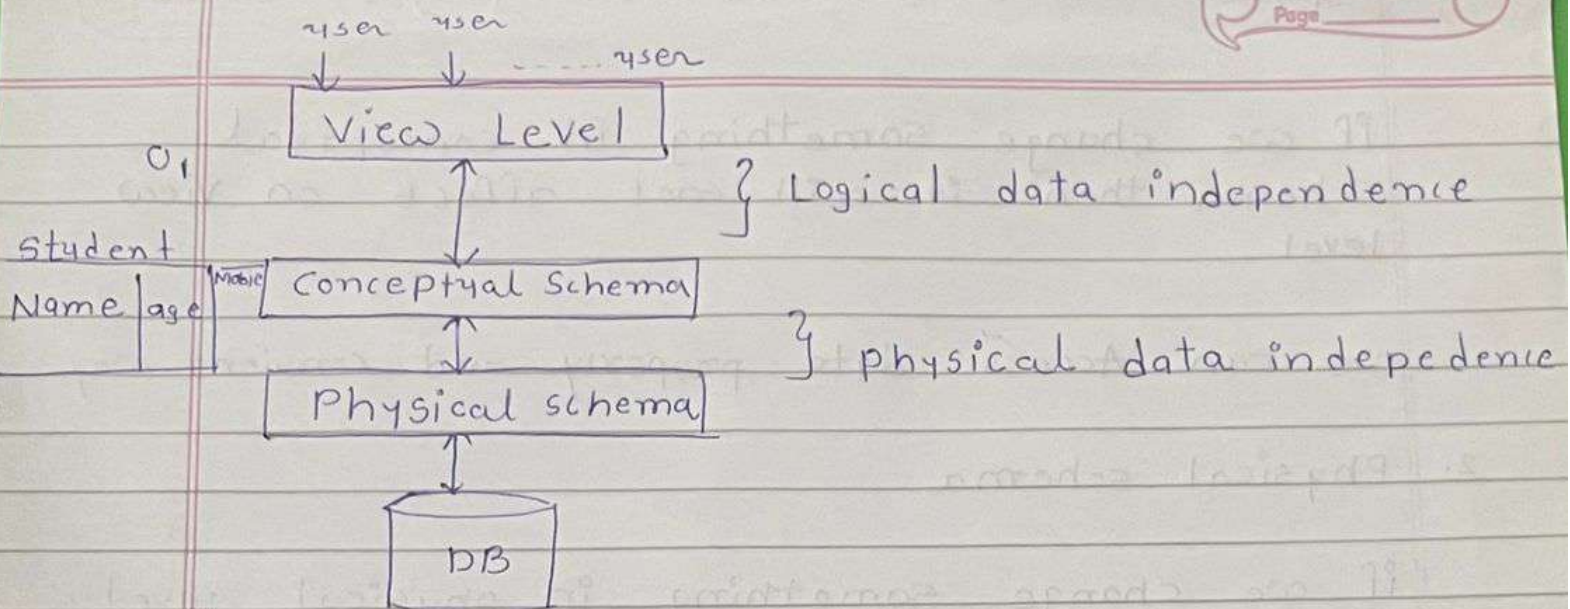 Page
user user
...... user
View Level
0,
} Logical data independence
Student
Name age Mobile
Conceptual Schema
} physical data indepedence
Physical schema
DB